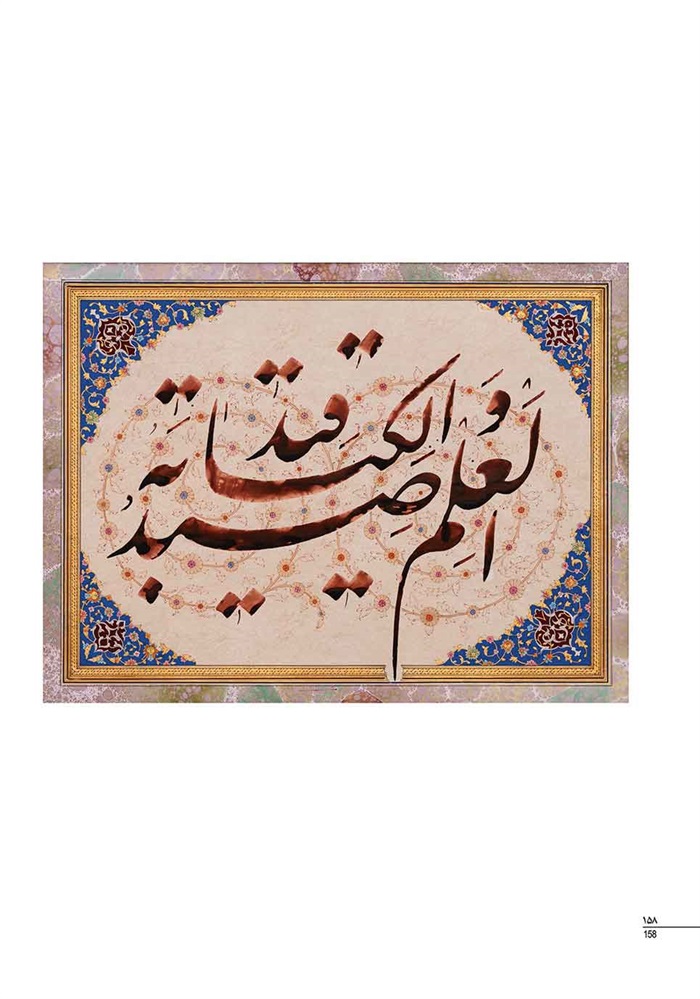 العلم صید و الکتابة قید
۱۵۸
158